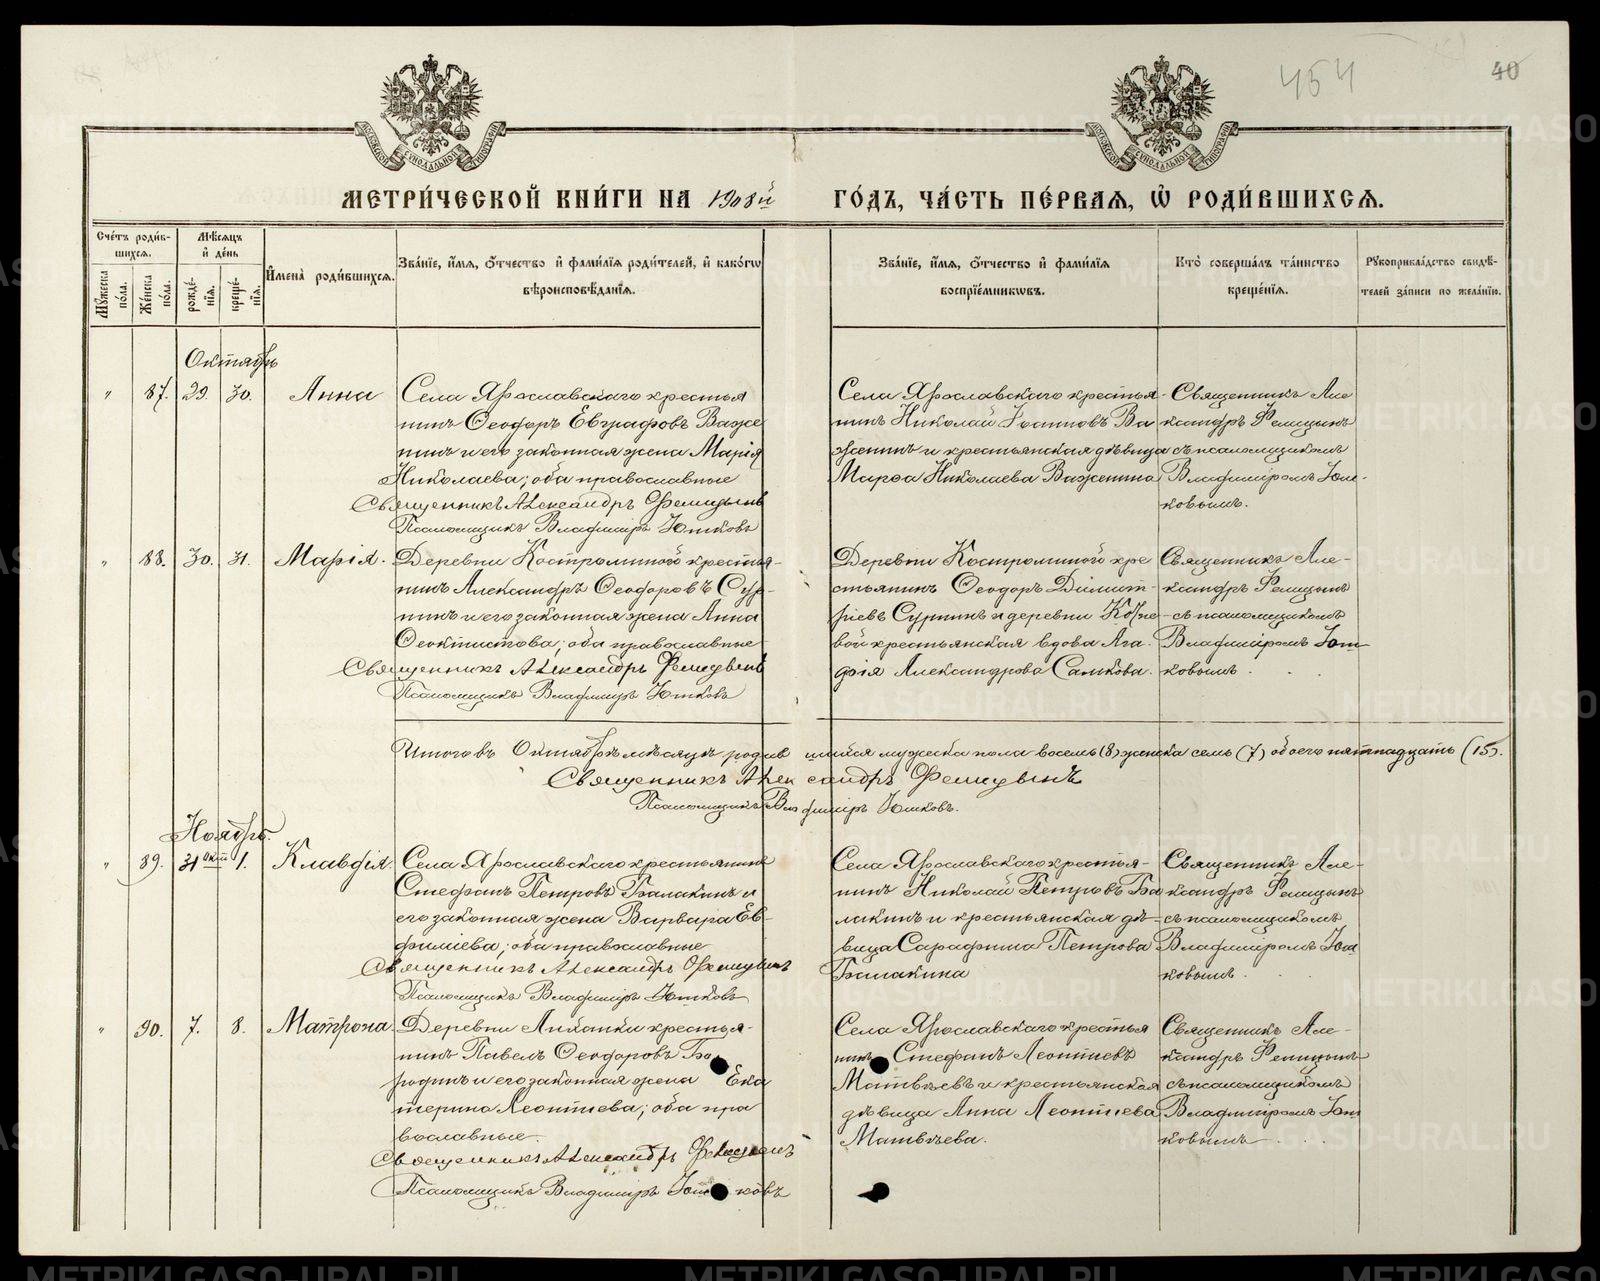 454
40
МОСКОВСКОЙ СѴНОДАЛЬНОЙ ТИПОГРАФІИ
МОСКОВСКОЙ СѴНОДАЛЬНОЙ ТИПОГРАФІИ
МЕТРИ́ЧЕСКОЙ КНИ́ГИ НА 1908й ГО́ДЪ, ЧА́СТЬ ПЕ́РВАѦ, Ѡ҆ РОДИ́ВШИХСѦ.
Сче́тъ роди́в-
шихсѧ.
Мѣ́сѧцъ
и҆ де́нь
Мꙋ́жеска по́ла.
Же́нска по́ла.
рожде́-
нїѧ.
креще́-
нїѧ.
И҆мена̀ роди́вшихсѧ.
Зва́нїе, и҆́мѧ, ѻ҆́тчество и҆ фами́лїѧ роди́телей, и҆ како́гѡ
вѣроисповѣ́данїѧ.
Зва́нїе, и҆́мѧ, ѻ҆́тчество и҆ фами́лїѧ
воспрїе́мникѡвъ.
Кто̀ соверша́лъ та́инство
креще́нїѧ.
Рꙋкоприкла́дство свидѣ́-
телей за́писи по жела́нїю.
Октябрь
" 87. 29. 30. Анна
Села Ярославскаго крестья
нинъ Ѳеодоръ Евграфовъ Важе
нинъ и его законная жена Марія
Николаева; оба православные
Священникъ Александръ Фелицынъ
Псаломщикъ Владиміръ Ютковъ
Села Ярославскаго крестья-
нинъ Николай Іоанновъ Ва
женинъ и крестьянская дѣвица
Марѳа Николаева Важенина
Священникъ Але
ксандръ Фелицынъ
съ псаломщикомъ
Владиміромъ Ют-
ковымъ.
" 88. 30. 31. Марія.
Деревни Костроминой крестья-
нинъ Александръ Ѳеодоровъ Сур-
нинъ и его законная жена Анна
Ѳеоктистова; оба православные
Священникъ Александръ Фелицынъ
Псаломщикъ Владиміръ Ютковъ
Деревни Костроминой кре
стьянинъ Ѳеодоръ Димит-
ріевъ Сурнинъ и деревни
вой крестьянская вдова Ага-
фія Александрова Санкова.
Священникъ Але-
ксандръ Фелицынъ
съ псаломщикомъ
Владиміромъ Ют-
ковымъ.
Итого въ Октябрѣ мѣсяцѣ родив шихся мужеска пола восемь (8) женска семь (7) обоего пятнадцать (15).
Священникъ Александръ Фелицынъ
Псаломщикъ Владиміръ Ютковъ.
Ноябрь.
" 89. 31 окт 1. Клавдія.
Села Ярославскаго крестьянинъ
Стефанъ Петровъ Балакинъ и
его законная жена Варвара Ев-
фиміева; оба православные
Священникъ Александръ Фелицынъ
Псаломщикъ Владиміръ Ютковъ
Села Ярославскаго крестья-
нинъ Николай Петровъ Ба
лакинъ и крестьянская дѣ-
вица Сарафима Петрова
Балакина
Священникъ Але-
ксандръ Фелицынъ
съ псаломщикомъ
Владиміромъ Ют
ковымъ.
" 90. 7. 8. Матрона.
Деревни Лихонки крестья-
нинъ Павелъ Ѳеодоровъ Бо
родинъ и его законная жена Ека
терина Леонтіева; оба пра
вославные.
Священникъ Александръ Фелицынъ
Псаломщикъ Владиміръ Ютковъ
Села Ярославскаго крестья
нинъ Стефанъ Леонтіевъ
Матвѣевъ и крестьянская
дѣвица Анна Леонтіева
Матвѣева.
Священникъ Але-
ксандръ Фелицынъ
съ псаломщикомъ
Владиміромъ Ют
ковымъ
METRIKI.GASO-URAL.RU